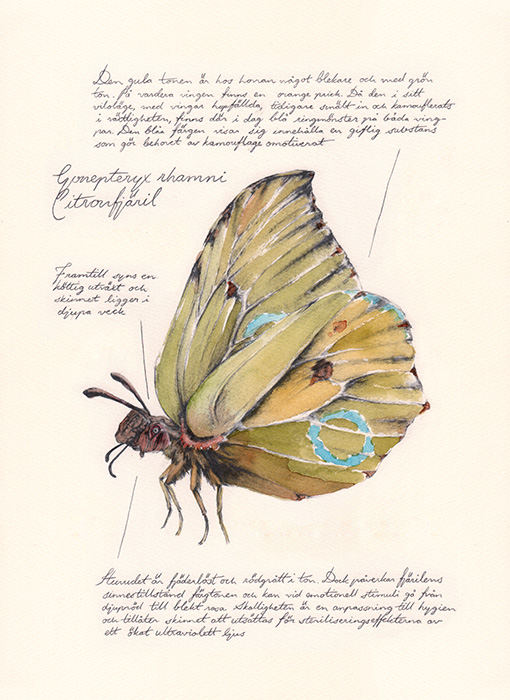 Den gula tonen är hos honan något blekare och med grön
ton. På vardera vingen finns en orange prick. Då den i sitt
viloläge, med vingar hopfällda, tidigare smält in och kamouflerats
i växtligheten, finns där i dag blå ringmönster på båda ving-
par. Den blåa färgen visar sig innehålla en giftig substans
som gör behovet av kamouflage omotiverat
Gonepteryx rhamni
Citronfjäril
Framtill syns en
köttig utväxt och
skinnet ligger i
djupa veck
Huvudet är fjäderlöst och rödgrått i ton. Dock påverkar fjärilens
sinnestillstånd färgtonen och kan vid emotionell stimuli gå från
djupröd till blekt rosa. Skalligheten är en anpassning till hygien
och tillåter skinnet att utsättas för steriliseringseffekterna av
ett ökat ultraviolett ljus